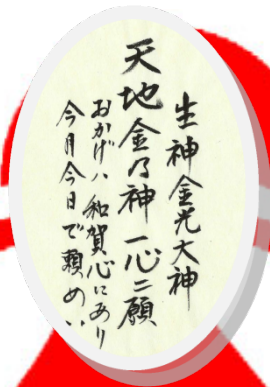 生神金光大神
天地金乃神一心ニ願
おかげハ和賀心にあり
今月今日で頼めい